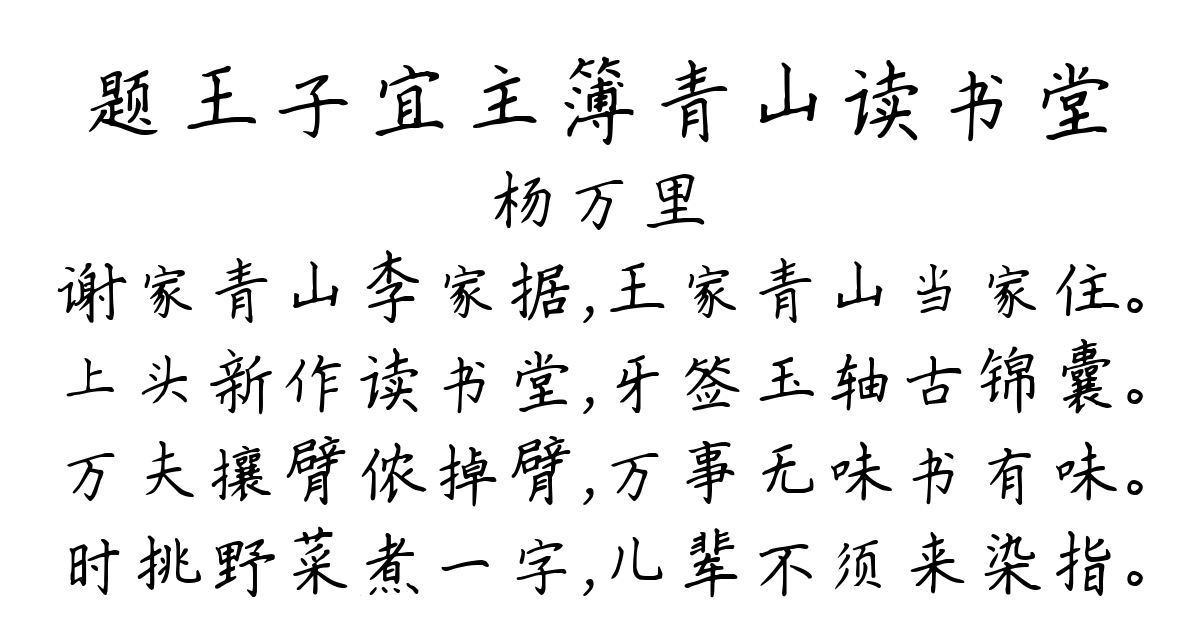 题王子宜主簿青山读书堂
杨万里
谢家青山李家据,王家青山当家住。
上头新作读书堂,牙签玉轴古锦囊。
万夫攘臂侬掉臂,万事无味书有味。
时挑野菜煮一字,儿辈不须来染指。